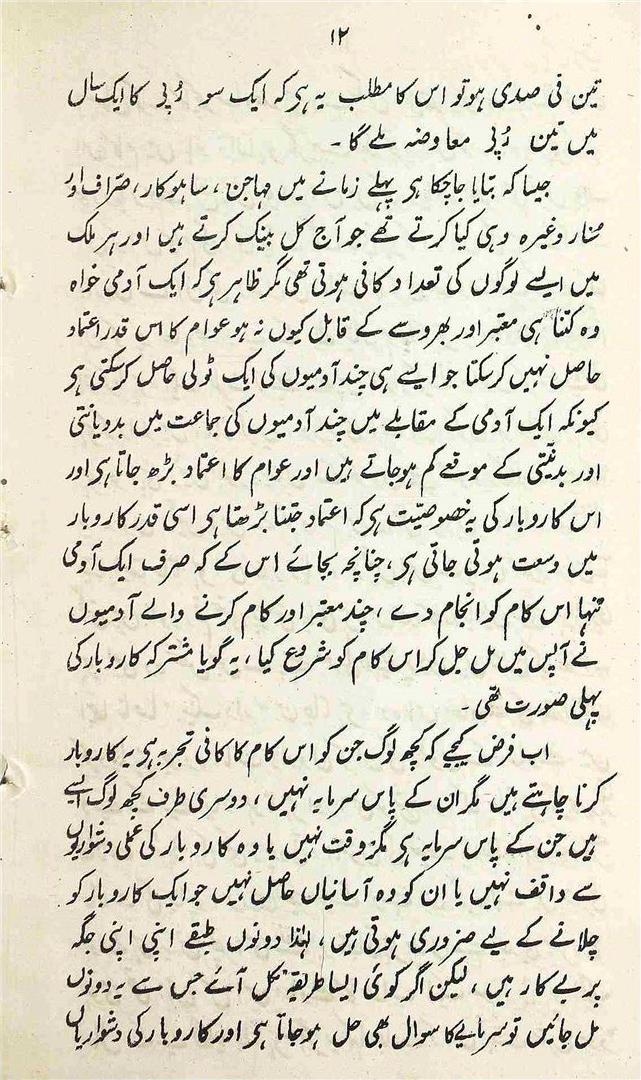 ۱۲
تین فی صدی ہو تو اس کا مطلب یہ ہی کہ ایک سو رُپی کا ایک سال
میں تین رُپی معاوضہ ملے گا۔
جیسا کہ بتایا جاچکا ہی پہلے زمانے میں مہاجن، ساہوکار، صرّاف اور
سُنار وغیرہ وہی کیا کرتے تھے جو آج کل بینک کرتے ہیں اور ہر ملک
میں ایسے لوگوں کی تعداد کافی ہوتی تھی مگر ظاہر ہی کہ ایک آدمی خواہ
وہ کتنا ہی معتبر اور بھروسے کے قابل کیوں نہ ہو عوام کا اس قدر اعتماد
حاصل نہیں کرسکتا جو ایسے ہی چند آدمیوں کی ایک ٹولی حاصل کرسکتی ہی
کیونکہ ایک آدمی کے مقابلے میں چند آدمیوں کی جماعت میں بددیانتی
اور بدنیّتی کے موقعے کم ہوجاتے ہیں اور عوام کا اعتماد بڑھ جاتا ہی اور
اس کاروبار کی یہ خصوصیّت ہی کہ اعتماد جتنا بڑھتا ہی اسی قدر کاروبار
میں وسعت ہوتی جاتی ہی، چنانچہ بجائے اس کے کہ صرف ایک آدمی
تنہا اس کام کو انجام دے، چند معتبر اور کام کرنے والے آدمیوں
نے آپس میں مل جل کر اس کام کو شروع کیا، یہ گویا مشترکہ کاروبار کی
پہلی صورت تھی۔
اب فرض کیجیے کہ کچھ لوگ جن کو اس کام کا کافی تجربہ ہی یہ کاروبار
کرنا چاہتے ہیں مگر ان کے پاس سرمایہ نہیں، دوسری طرف کچھ لوگ ایسے
ہیں جن کے پاس سرمایہ ہی مگر وقت نہیں یا وہ کاروبار کی عملی دشواریوں
سے واقف نہیں یا ان کو وہ آسانیاں حاصل نہیں جو ایک کاروبار کو
چلانے کے لیے ضروری ہوتی ہیں، لہٰذا دونوں طبقے اپنی اپنی جگہ
پر بے کار ہیں، لیکن اگر کوئی ایسا طریقہ نکل آئے جس سے یہ دونوں
مل جائیں تو سرمایے کا سوال بھی حل ہوجاتا ہی اور کاروبار کی دشواریاں